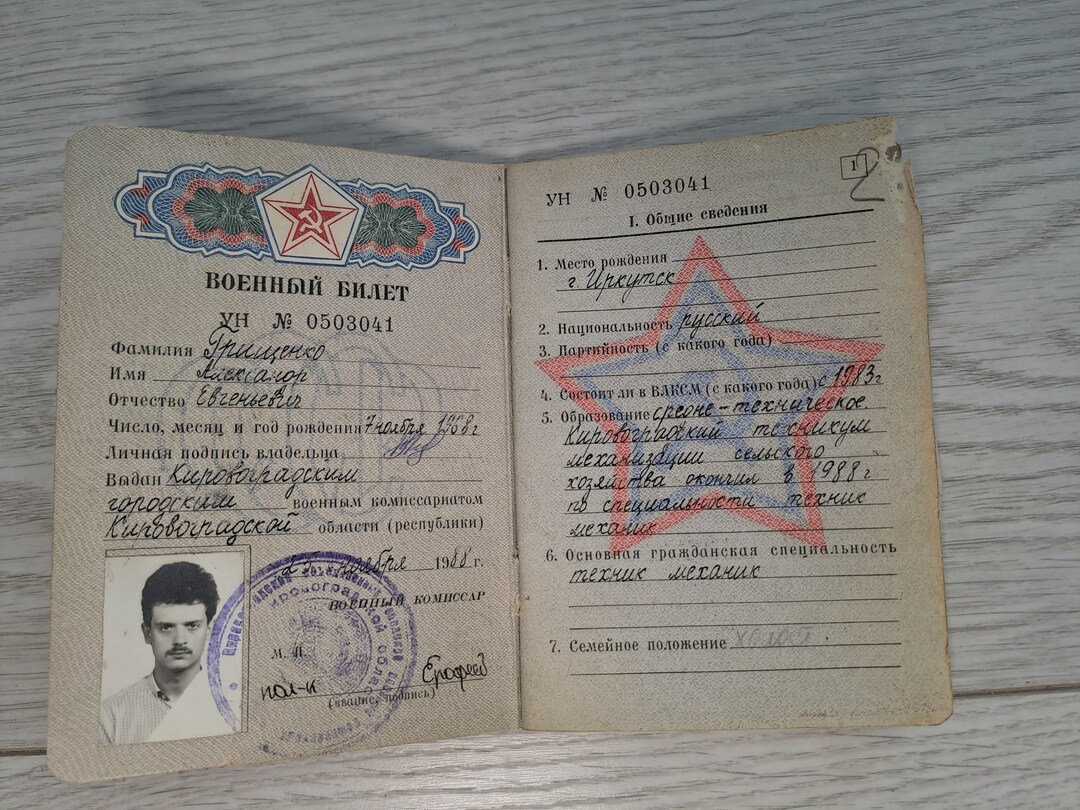 ВОЕННЫЙ БИЛЕТ
УН № 0503041
Фамилия Грищенко
Имя Александр
Отчество Евгеньевич
Число, месяц и год рождения 7 ноября 1968 г
Личная подпись владельца
Выдан Кировоградским
городским военным комиссариатом
Кировоградской области (республики)
ноября 1988 г.
ВОЕННЫЙ КОМИССАР
М. П.
пол-к Ерофеев
(звание, подпись)
1
2
УН № 0503041
I. Общие сведения
1. Место рождения
г. Иркутск
2. Национальность русский
3. Партийность (с какого года)
4. Состоит ли в ВЛКСМ (с какого года) с 1983 г
5. Образование средне-техническое.
Кировоградский техникум
механизации сельского
хозяйства окончил в 1988 г
по специальности техник
механик
6. Основная гражданская специальность
техник механик
7. Семейное положение холост